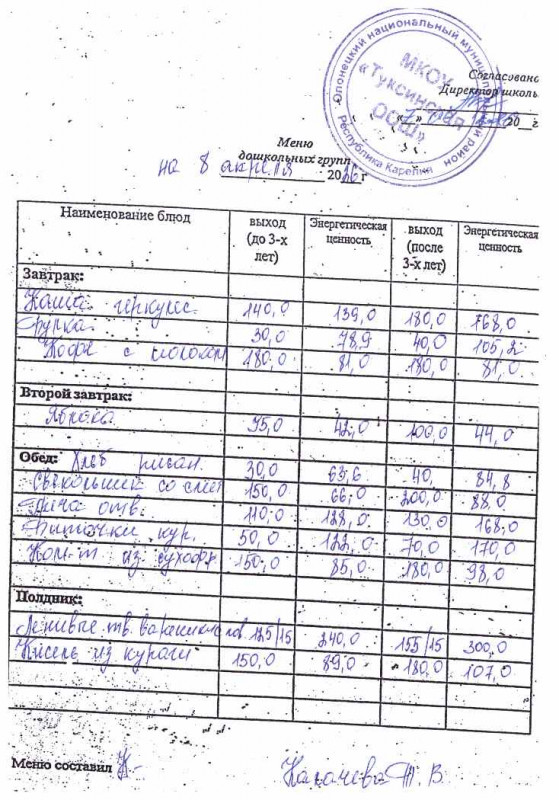 Олонецкий национальный муниципальный район
Республика Карелия
МКОУ
«Туксинская
ООШ»
Согласовано
Директор школы
20 г
Меню
дошкольных групп
на 8 апреля 2026 г
Наименование блюд выход (до 3-х лет) Энергетическая ценность выход (после 3-х лет) Энергетическая ценность
Завтрак:
Каша геркулес 140,0 139,0 180,0 768,0
Булка 30,0 78,9 40,0 105,2
Кофе с молоком 180,0 81,0 180,0 81,0
Второй завтрак:
Яблоко 95,0 42,0 100,0 44,0
Обед: Хлеб ржан. 30,0 63,6 40, 84,8
Свекольник со смет 150,0 66,0 200,0 88,0
отв. 110,0 128,0 130,0 168,0
Биточки кур. 50,0 122,0 70,0 170,0
Комп-т из сухофр 150,0 85,0 180,0 98,0
Полдник:
Ленивые тв. вареники 125/15 240,0 155/15 300,0
Кисель из кураги 150,0 89,0 180,0 107,0
Меню составил